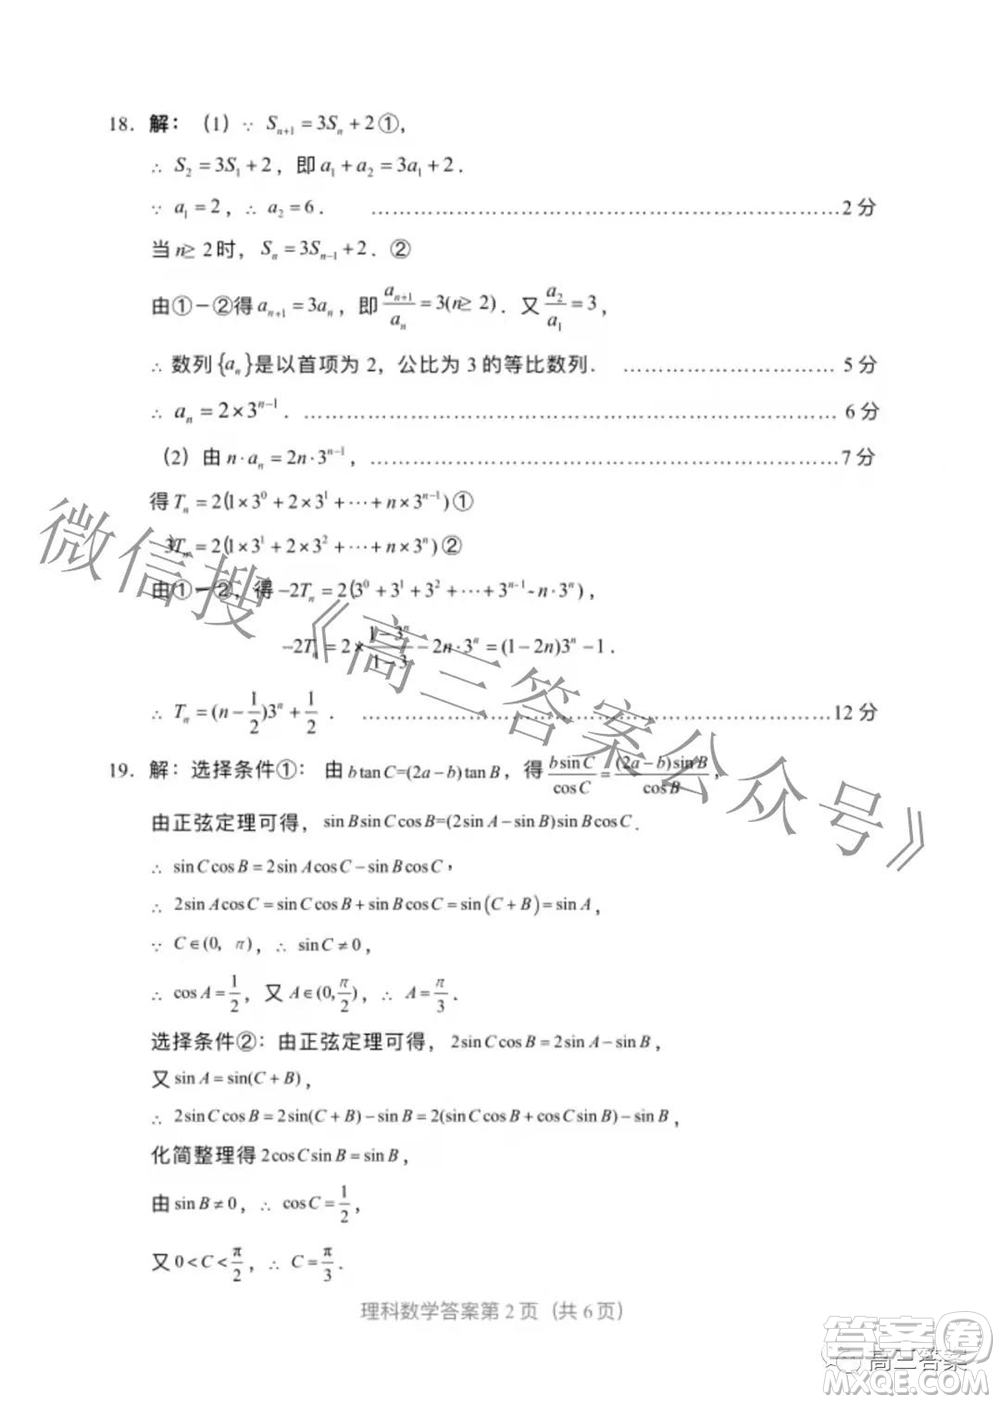 18. 解：（1）∵ Sₙ₊₁ = 3Sₙ + 2①，
∴ S₂ = 3S₁ + 2，即 a₁ + a₂ = 3a₁ + 2．
∵ a₁ = 2，∴ a₂ = 6． ……………………………………………………2 分
当 n ≥ 2 时，Sₙ = 3Sₙ₋₁ + 2．②
由①－②得 aₙ₊₁ = 3aₙ，即 aₙ₊₁/aₙ = 3(n ≥ 2)．又 a₂/a₁ = 3，
∴ 数列{aₙ}是以首项为 2，公比为 3 的等比数列． ……………………… 5 分
∴ aₙ = 2×3ⁿ⁻¹．…………………………………………………………… 6 分
（2）由 n·aₙ = 2n·3ⁿ⁻¹，……………………………………………………7 分
得 Tₙ = 2(1×3⁰ + 2×3¹ + ⋯ + n×3ⁿ⁻¹)①
3Tₙ = 2(1×3¹ + 2×3² + ⋯ + n×3ⁿ)②
由①－②，得 −2Tₙ = 2(3⁰ + 3¹ + 3² + ⋯ + 3ⁿ⁻¹ - n·3ⁿ)，
−2Tₙ = 2×(1−3ⁿ)/(1−3) − 2n·3ⁿ = (1−2n)3ⁿ − 1．
∴ Tₙ = (n − 1/2)3ⁿ + 1/2． ……………………………………………………12 分
19. 解：选择条件①：由 b tan C=(2a−b) tan B，得 b sin C/cos C = (2a−b) sin B/cos B，
由正弦定理可得，sin B sin C cos B=(2sin A−sin B)sin B cos C．
∴ sin C cos B = 2sin A cos C − sin B cos C，
∴ 2sin A cos C = sin C cos B + sin B cos C = sin(C+B) = sin A，
∵ C∈(0，π)，∴ sin C ≠ 0，
∴ cos A = 1/2，又 A∈(0,π/2)，∴ A = π/3．
选择条件②：由正弦定理可得，2sin C cos B = 2sin A − sin B，
又 sin A = sin(C+B)，
∴ 2sin C cos B = 2sin(C+B) − sin B = 2(sin C cos B + cos C sin B) − sin B，
化简整理得 2cos C sin B = sin B，
由 sin B ≠ 0，∴ cos C = 1/2，
又 0 < C < π/2，∴ C = π/3．
理科数学答案第 2 页（共 6 页）
微信搜《高三答案公众号》
答案圈
高三答案
MXQE.COM